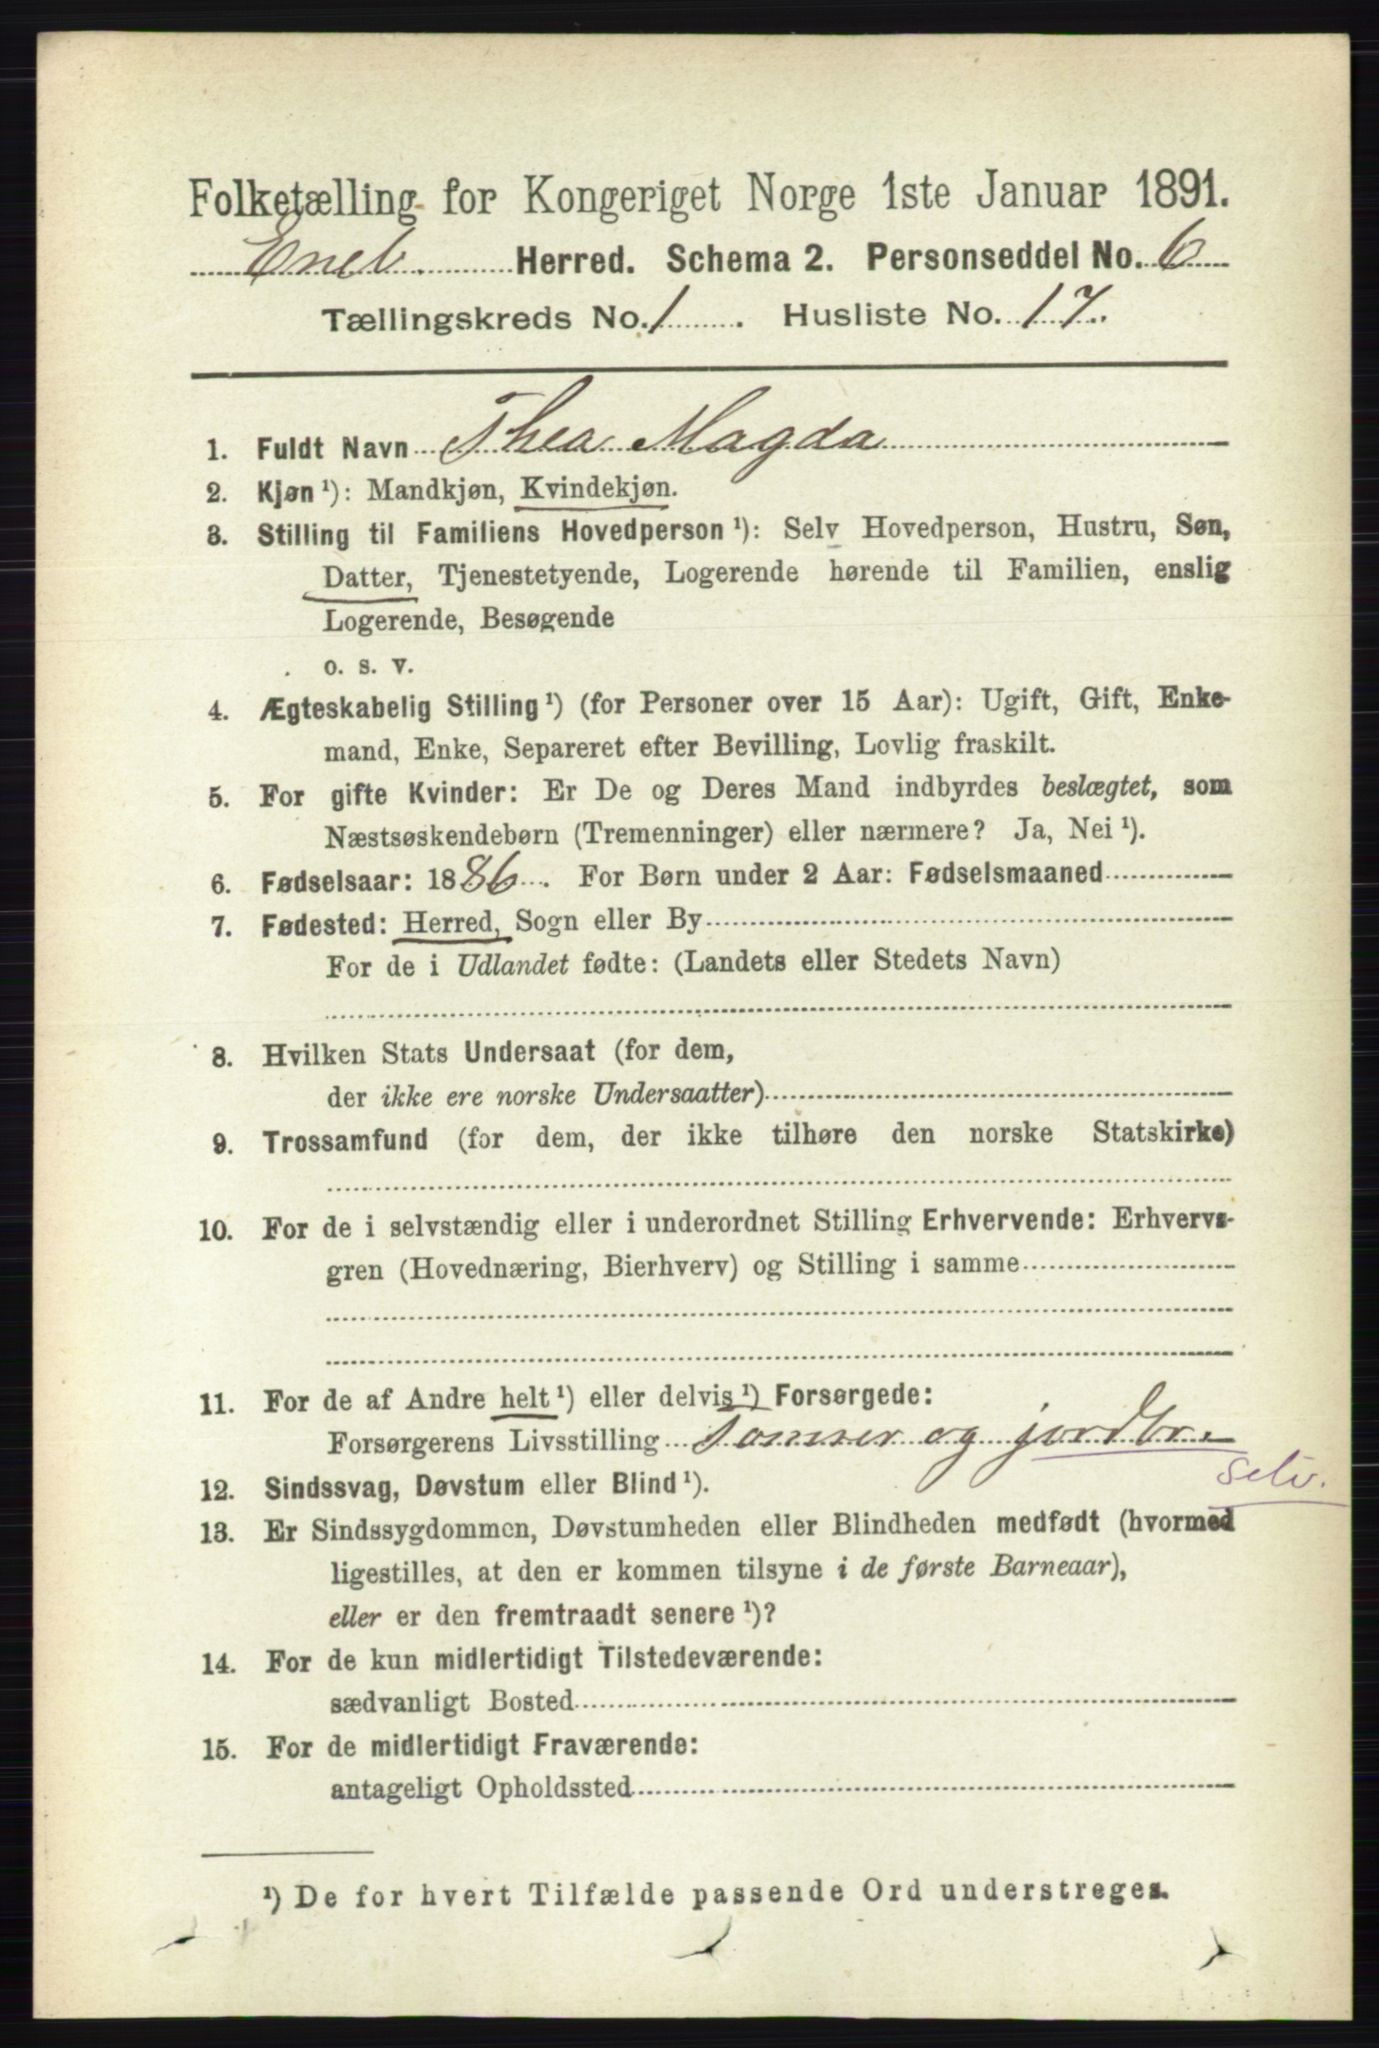 Folketælling for Kongeriget Norge 1ste Januar 1891.
Eneb. Herred. Schema 2. Personseddel No. 6
Tællingskreds No. 1. Husliste No. 17.
1. Fuldt Navn Thea Magda
2. Kjøn ¹): Mandkjøn, Kvindekjøn.
3. Stilling til Familiens Hovedperson ¹): Selv Hovedperson, Hustru, Søn,
Datter, Tjenestetyende, Logerende hørende til Familien, enslig
Logerende, Besøgende
o. s. v.
4. Ægteskabelig Stilling ¹) (for Personer over 15 Aar): Ugift, Gift, Enke-
mand, Enke, Separeret efter Bevilling, Lovlig fraskilt.
5. For gifte Kvinder: Er De og Deres Mand indbyrdes beslægtet, som
Næstsøskendebørn (Tremenninger) eller nærmere? Ja, Nei ¹).
6. Fødselsaar: 1886. For Børn under 2 Aar: Fødselsmaaned
7. Fødested: Herred, Sogn eller By
For de i Udlandet fødte: (Landets eller Stedets Navn)
8. Hvilken Stats Undersaat (for dem,
der ikke ere norske Undersaatter)
9. Trossamfund (for dem, der ikke tilhøre den norske Statskirke)
10. For de i selvstændig eller i underordnet Stilling Erhvervende: Erhvervs-
gren (Hovednæring, Bierhverv) og Stilling i samme
11. For de af Andre helt ¹) eller delvis ¹) Forsørgede:
Forsørgerens Livsstilling Tømmer og jordbr.
selv.
12. Sindssvag, Døvstum eller Blind ¹).
13. Er Sindssygdommen, Døvstumheden eller Blindheden medfødt (hvormed
ligestilles, at den er kommen tilsyne i de første Barneaar),
eller er den fremtraadt senere ¹)?
14. For de kun midlertidigt Tilstedeværende:
sædvanligt Bosted
15. For de midlertidigt Fraværende:
antageligt Opholdssted
¹) De for hvert Tilfælde passende Ord understreges.